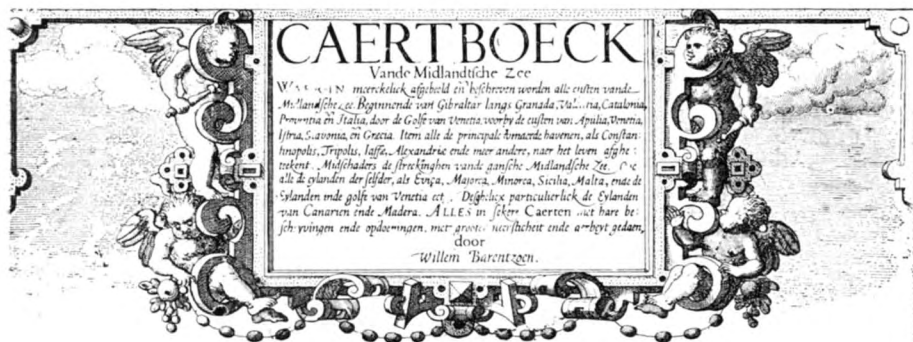 CAERTBOECK
Vande Midlandtsche Zee
meerckelick afgebeeld en beschreven worden alle custen vande
Midlandsche Zee. Beginnende van Gibraltar langs Granada, Catalonia,
Provintia en Italia, door de Golfe van Venetia, voorby de custen van Apulia, Venetia,
Istria, Slavonia, en Grecia. Item alle de principale havenen, als Constan
tinopolis, Tripolis, Iaffa, Alexandrie ende meer andere, naer het leven afghe:
teekent. Midschaders de streckinghen vande gansche Midlandsche Zee.
alle de eylanden der selfder, als Evıça, Majorca, Minorca, Sicilia, Malta, ende de
Eylanden inde golfe van Venetia particulierlick de Eylanden
van Canarien ende Madera. ALLES in Caerten met hare be:
schryvingen ende opdoeningen, met groote neersticheit ende arbeyt gedaen,
door
Willem Barentzoen.